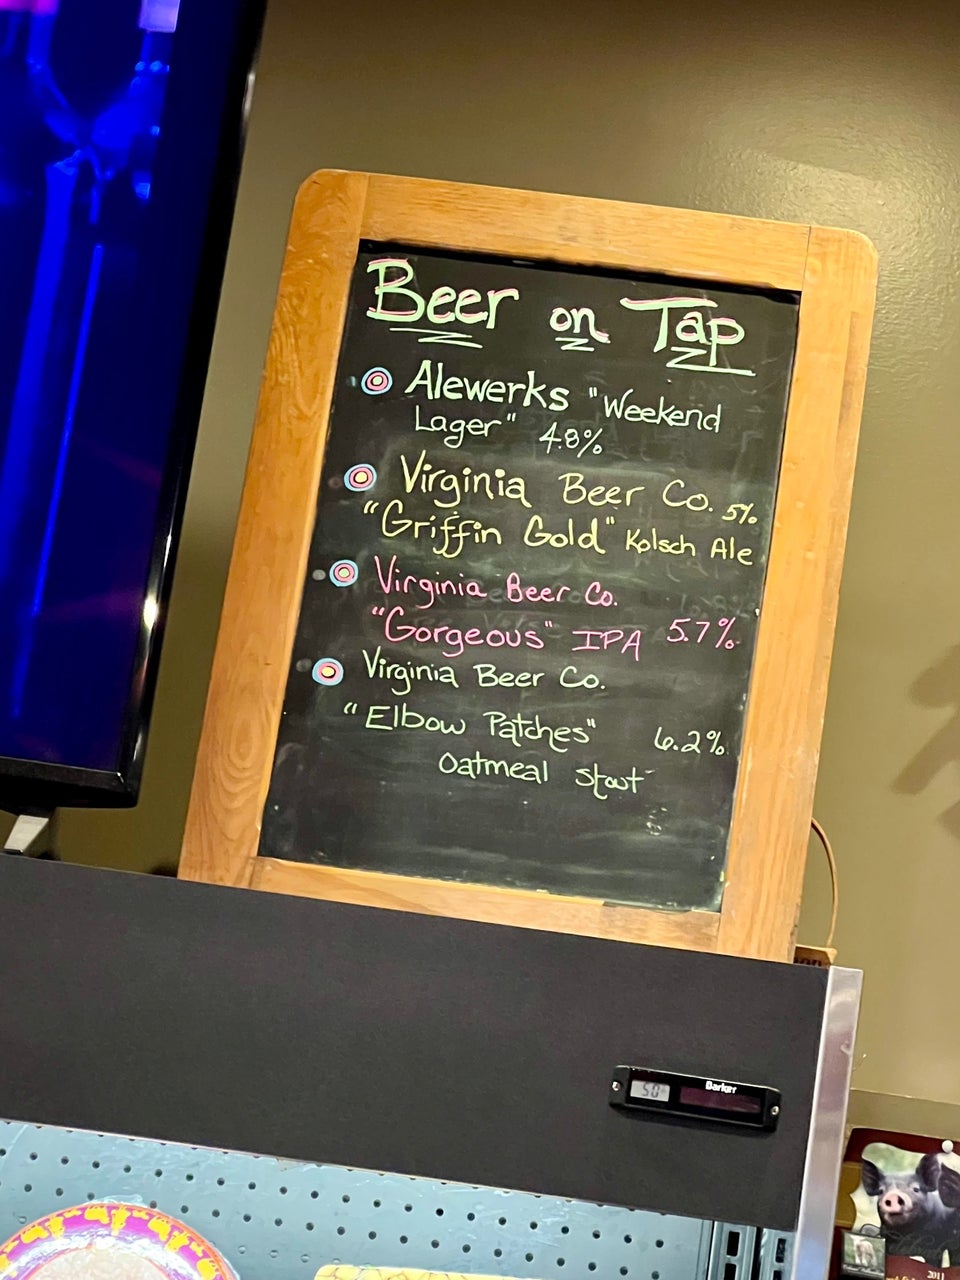 Beer on Tap
Alewerks "Weekend
Lager" 4.8%
Virginia Beer Co. 5%
"Griffin Gold" Kolsch Ale
Virginia Beer Co.
"Gorgeous" IPA 5.7%
Virginia Beer Co.
"Elbow Patches" 6.2%
Oatmeal Stout
50
Barker
2011